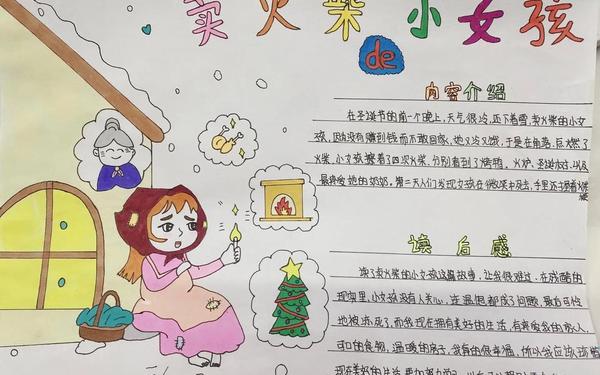 卖火柴de小女孩
内容介绍
在圣诞节的前一个晚上,天气很冷,还下着雪,卖火柴的小女
孩,因为没有赚到钱而不敢回家,她又冷又饿,于是在角落,点燃了
火柴,小女孩擦着了四次火柴,分别看到了烤鸭,火炉,圣诞树,以及
最疼爱她的奶奶,第二天人们发现女孩在微笑中死去,手里还握着火柴
读后感
读了卖火柴的小女孩这篇故事,让我很难过,在残酷的
现实里,小女孩没有人关心,连温饱都成了问题,最后可怜
也被冻死了,而我现在拥有美好的生活,有疼爱我的家人,
可口的食物,温暖的房子,我真的很幸福,所以我应该珍惜
现在美好的生活